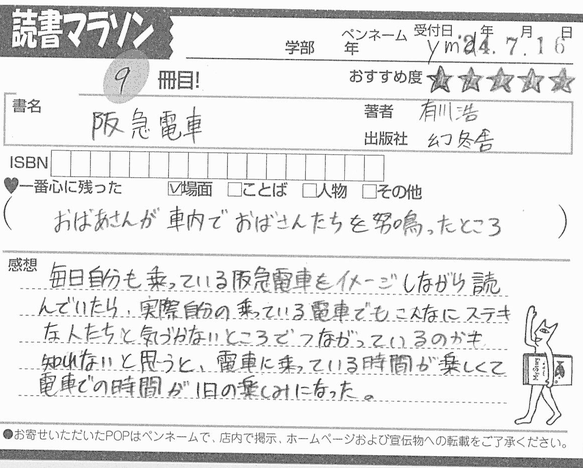 読書マラソン
学部 年 ペンネーム ymd 受付日 '24.年7.月16日
9 冊目!
おすすめ度 ★★★★★
書名 阪急電車
著者 有川浩
出版社 幻冬舎
ISBN
♥一番心に残った ☑場面 □ことば □人物 □その他
(おばあさんが車内でおばさんたちを怒鳴ったところ)
感想
毎日自分も乗っている阪急電車をイメージしながら読
んでいたら、実際自分の乗っている電車でもこんなにステキ
な人たちと気づかないところでつながっているのかも
知れないと思うと、電車に乗っている時間が楽しくて
電車での時間が1日の楽しみになった。
●お寄せいただいたPOPはペンネームで、店内で掲示、ホームページおよび宣伝物への転載をご了承ください。